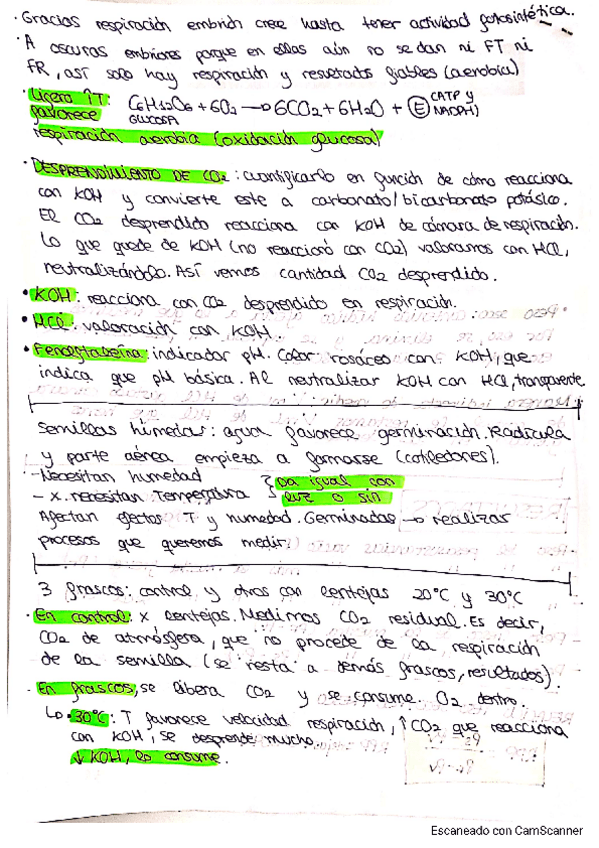 · Gracias respiración embrión crece hasta tener actividad fotosintética.
· A oscuras embriones porque en ellas aún no se dan ni FT ni
FR, así solo hay respiración y resultados fiables (aerobia)
· Ligero ↑T: C6H12O6 + 6O2 → 6CO2 + 6H2O + E (ATP y
favorece GLUCOSA NADPH)
respiración aerobia (oxidación glucosa)
· DESPRENDIMIENTO DE CO2: cuantificarlo en función de cómo reacciona
con KOH y convierte este a carbonato/bicarbonato potásico.
El CO2 desprendido reacciona con KOH de cámara de respiración.
Lo que quede de KOH (no reaccionó con CO2) valoramos con HCl,
neutralizándolo. Así vemos cantidad CO2 desprendido.
· KOH: reacciona con CO2 desprendido en respiración.
· HCl: valoración con KOH.
· Fenolftaleína: indicador pH. Color rosáceo con KOH, que
indica que pH básica. Al neutralizar KOH con HCl, transparente.
Semillas húmedas: agua favorece germinación. Radícula
y parte aérea empieza a formarse (cotiledones).
- Necesitan humedad } Da igual con
- x. necesitan Temperatura luz o sin
Afectan efectos T y humedad. Germinadas → realizar
procesos que queremos medir.
3 frascos: control y otros con lentejas 20°C y 30°C
· En control: x lentejas. Medimos CO2 residual. Es decir,
CO2 de atmósfera, que no procede de la respiración
de la semilla (se resta a demás frascos, resultados).
· En frascos, se libera CO2 y se consume O2 dentro.
↳ · 30°C: T favorece velocidad respiración, ↑CO2 que reacciona
con KOH, se desprende mucho.
↓ KOH, lo consume.
Escaneado con CamScanner